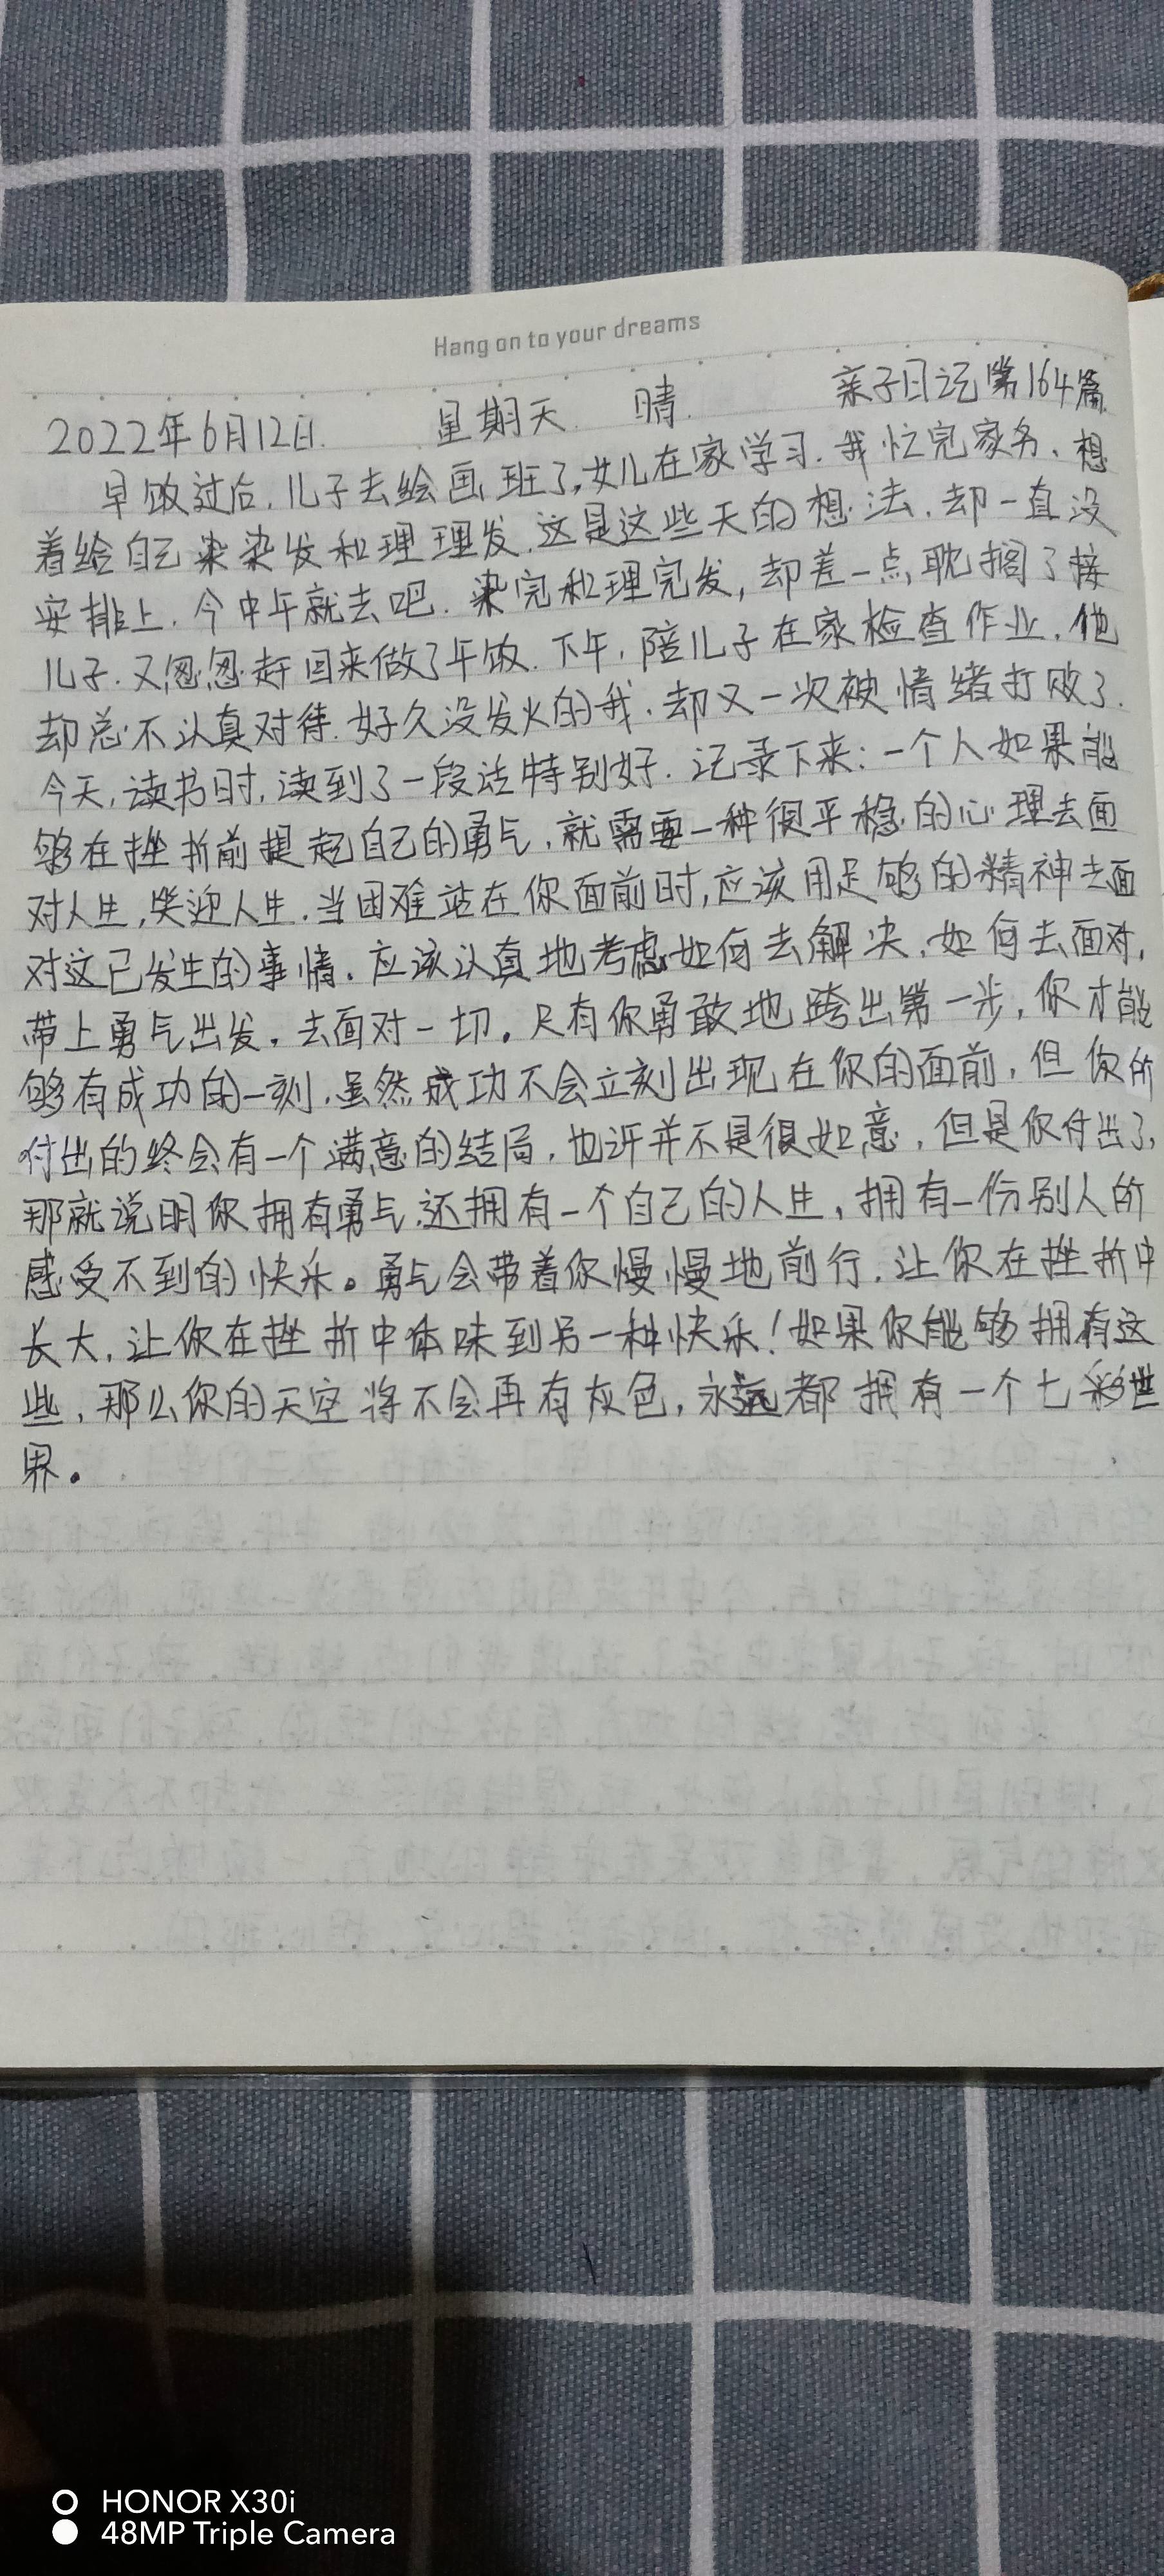 Hang on to your dreams
亲子日记第164篇
2022年6月12日. 星期天. 晴.
早饭过后,儿子去绘画班了,女儿在家学习.我忙完家务、想
着给自己染染发和理理发.这是这些天的想法.却一直没
安排上.今中午就去吧.染完和理完发,却差一点耽搁了接
儿子.又忽忽赶回来做了午饭.下午,陪儿子在家检查作业.他
却总不认真对待.好久没发火的我.却又一次被情绪打败了.
今天,读书时,读到了一段话特别好.记录下来:一个人如果能
够在挫折前提起自己的勇气,就需要一种很平稳的心理去面
对人生,笑迎人生.当困难站在你面前时,应该用足够的精神去面
对这已发生的事情.应该认真地考虑如何去解决,如何去面对,
带上勇气出发,去面对一切。只有你勇敢地跨出第一步,你才能
够有成功的一刻.虽然成功不会立刻出现在你的面前,但你所
付出的终会有一个满意的结局,也许并不是很如意,但是你付出了,
那就说明你拥有勇气.还拥有一个自己的人生,拥有一份别人所
感受不到的快乐。勇气会带着你慢慢地前行.让你在挫折中
长大,让你在挫折中体味到另一种快乐!如果你能够拥有这
些,那么你的天空将不会再有灰色,永远都拥有一个七彩世
界。
HONOR X30i
48MP Triple Camera